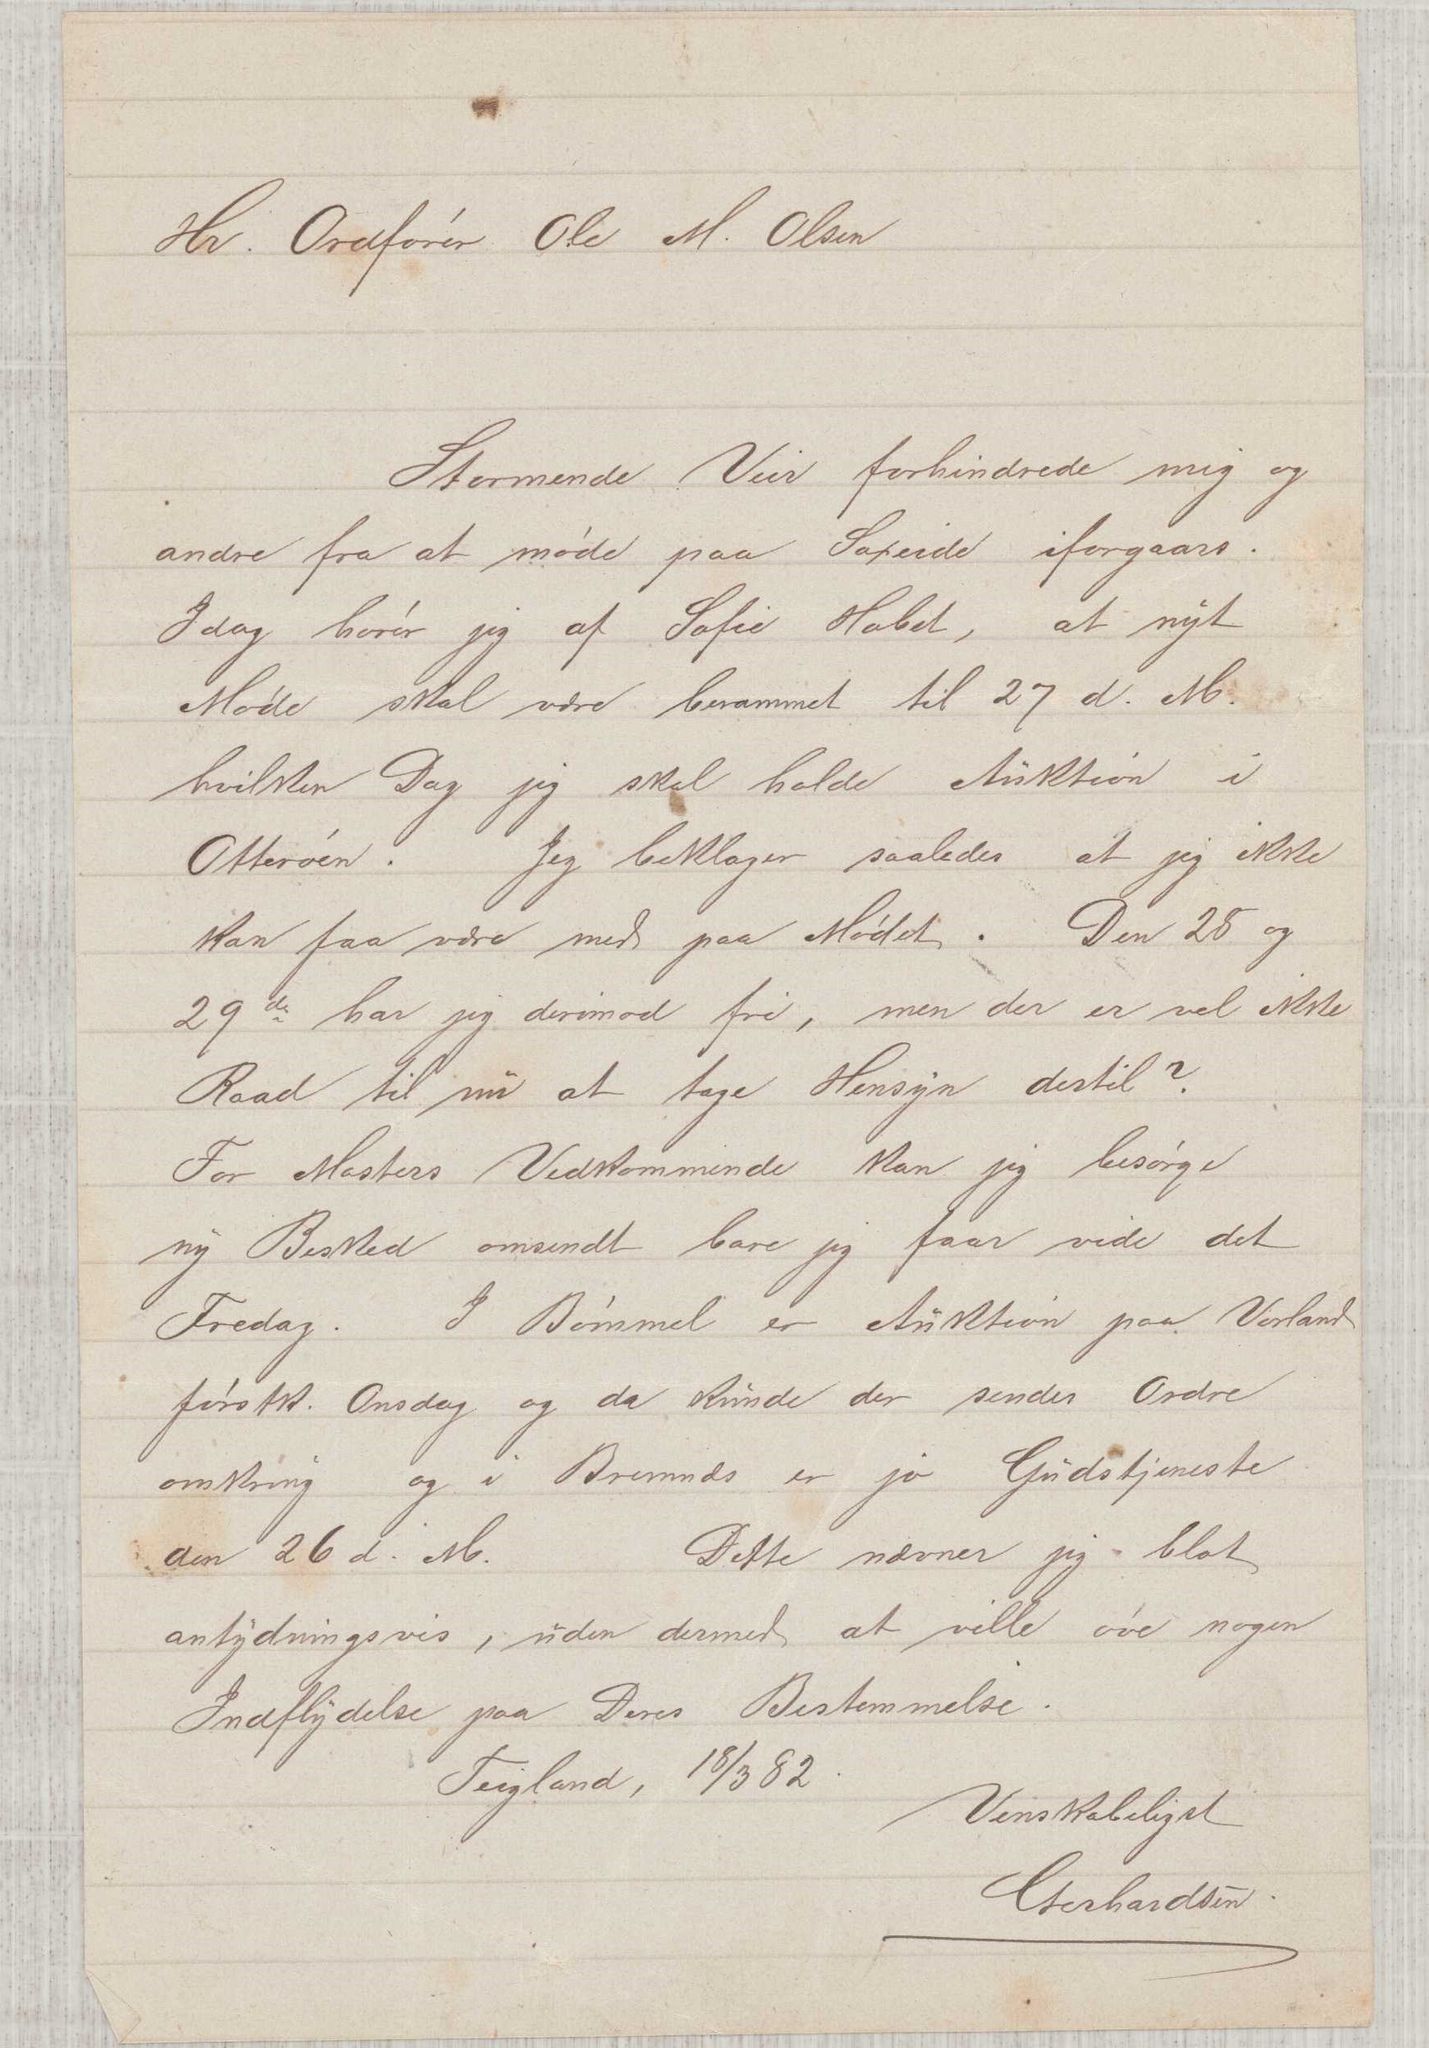 Hr. Ordfører Ole M. Olsen
Stormende Veir forhindrede mig og
andre fra at møde paa Søreide iforgaars.
Idag hører jeg af Sofie Habet, at nyt
Møde skal være berammet til 27 d. M.
hvilken Dag jeg skal holde Auktion i
Otterøen. Jeg beklager saaledes at jeg ikke
kan faa være med paa Mødet. Den 28 og
29de har jeg derimod fri, men der er vel ikke
Raad til nu at tage Hensyn dertil?
For Mosters Vedkommende kan jeg besørge
ny Besked omsendt bare jeg faar vide det
Fredag. I Bømmel er Auktion paa Vorland
førstk. Onsdag og da kunde der sendes Ordre
omkring og i Bremnæs er jo Gudstjeneste
den 26 d. M. Dette nævner jeg blot
antydningsvis, uden dermed at ville øve nogen
Indflydelse paa Deres Bestemmelse.
Teigland, 18/3 82.
Venskabeligst
Gerhardsen